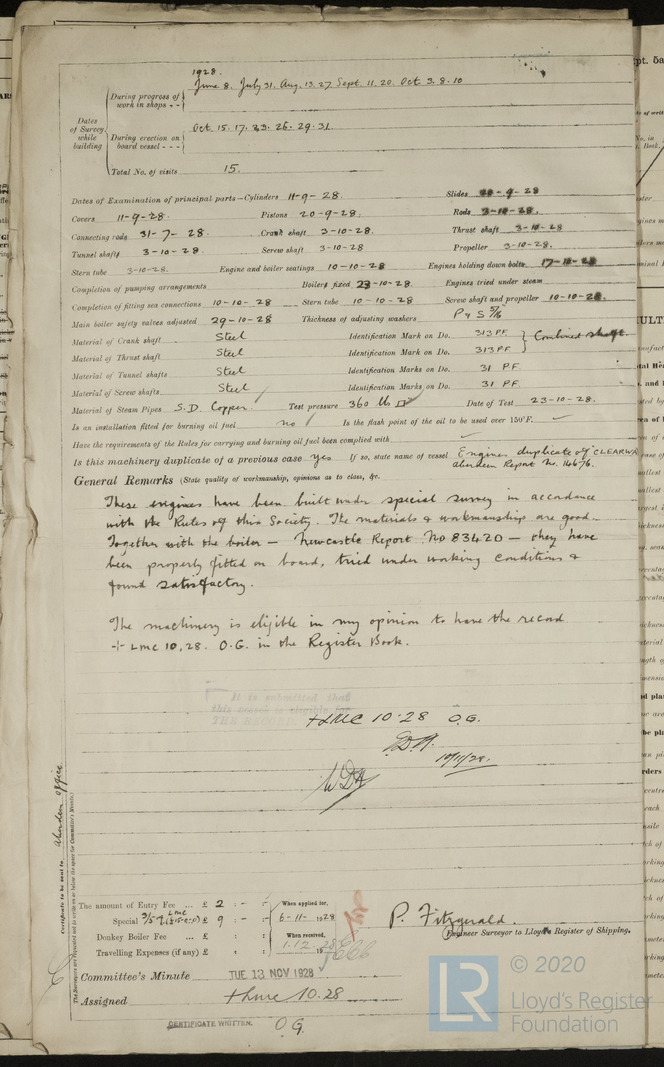 1928.
June 8. July 31. Aug. 13. 27. Sept. 11. 20. Oct 3. 8. 10
During progress of work in shops - -
Dates of Survey while building
Oct. 15. 17. 23. 26. 29. 31.
During erection on board vessel - - -
Total No. of visits 15.
Dates of Examination of principal parts—Cylinders 11-9-28. Slides 20-9-28
Covers 11-9-28. Pistons 20-9-28. Rods 3-10-28.
Connecting rods 31-7-28. Crank shaft 3-10-28. Thrust shaft 3-10-28
Tunnel shafts 3-10-28. Screw shaft 3-10-28 Propeller 3-10-28.
Stern tube 3-10-28. Engine and boiler seatings 10-10-28 Engines holding down bolts 17-10-28
Completion of pumping arrangements Boilers fixed 23-10-28. Engines tried under steam
Completion of fitting sea connections 10-10-28 Stern tube 10-10-28 Screw shaft and propeller 10-10-28.
Main boiler safety valves adjusted 29-10-28 Thickness of adjusting washers P & S 5/16
Material of Crank shaft Steel Identification Mark on Do. 313 PF } Combined shaft.
Material of Thrust shaft Steel Identification Mark on Do. 313 PF
Material of Tunnel shafts Steel Identification Marks on Do. 31 PF.
Material of Screw shafts Steel Identification Marks on Do. 31 PF.
Material of Steam Pipes S.D. Copper. Test pressure 360 lbs □" Date of Test 23-10-28.
Is an installation fitted for burning oil fuel no Is the flash point of the oil to be used over 150°F.
Have the requirements of the Rules for carrying and burning oil fuel been complied with
Is this machinery duplicate of a previous case yes If so, state name of vessel Engines duplicate of "CLEARWA
Aberdeen Report No. 14676.
General Remarks (State quality of workmanship, opinions as to class, &c.
These engines have been built under special survey in accordance
with the Rules of this Society. The materials & workmanship are good.
Together with the boiler — Newcastle Report No 83420 — they have
been properly fitted on board, tried under working conditions &
found satisfactory.
The machinery is eligible in my opinion to have the record
+ LMC 10,28. O.G. in the Register Book.
It is submitted that
this vessel is eligible for
THE RECORD
+ LMC 10.28 O.G.
WDA
Certificate to be sent to Aberdeen office
The amount of Entry Fee ... £ 2 : - : When applied for,
Special ... £ 9 : - : 6-11-1928
Donkey Boiler Fee ... £ : : When received,
Travelling Expenses (if any) £ : : 1.12.28
P. Fitzgerald.
Engineer Surveyor to Lloyd's Register of Shipping.
Committee's Minute TUE 13 NOV 1928
Assigned + Lmc 10.28
CERTIFICATE WRITTEN. O.G.
© 2020
LR
Lloyd's Register
Foundation